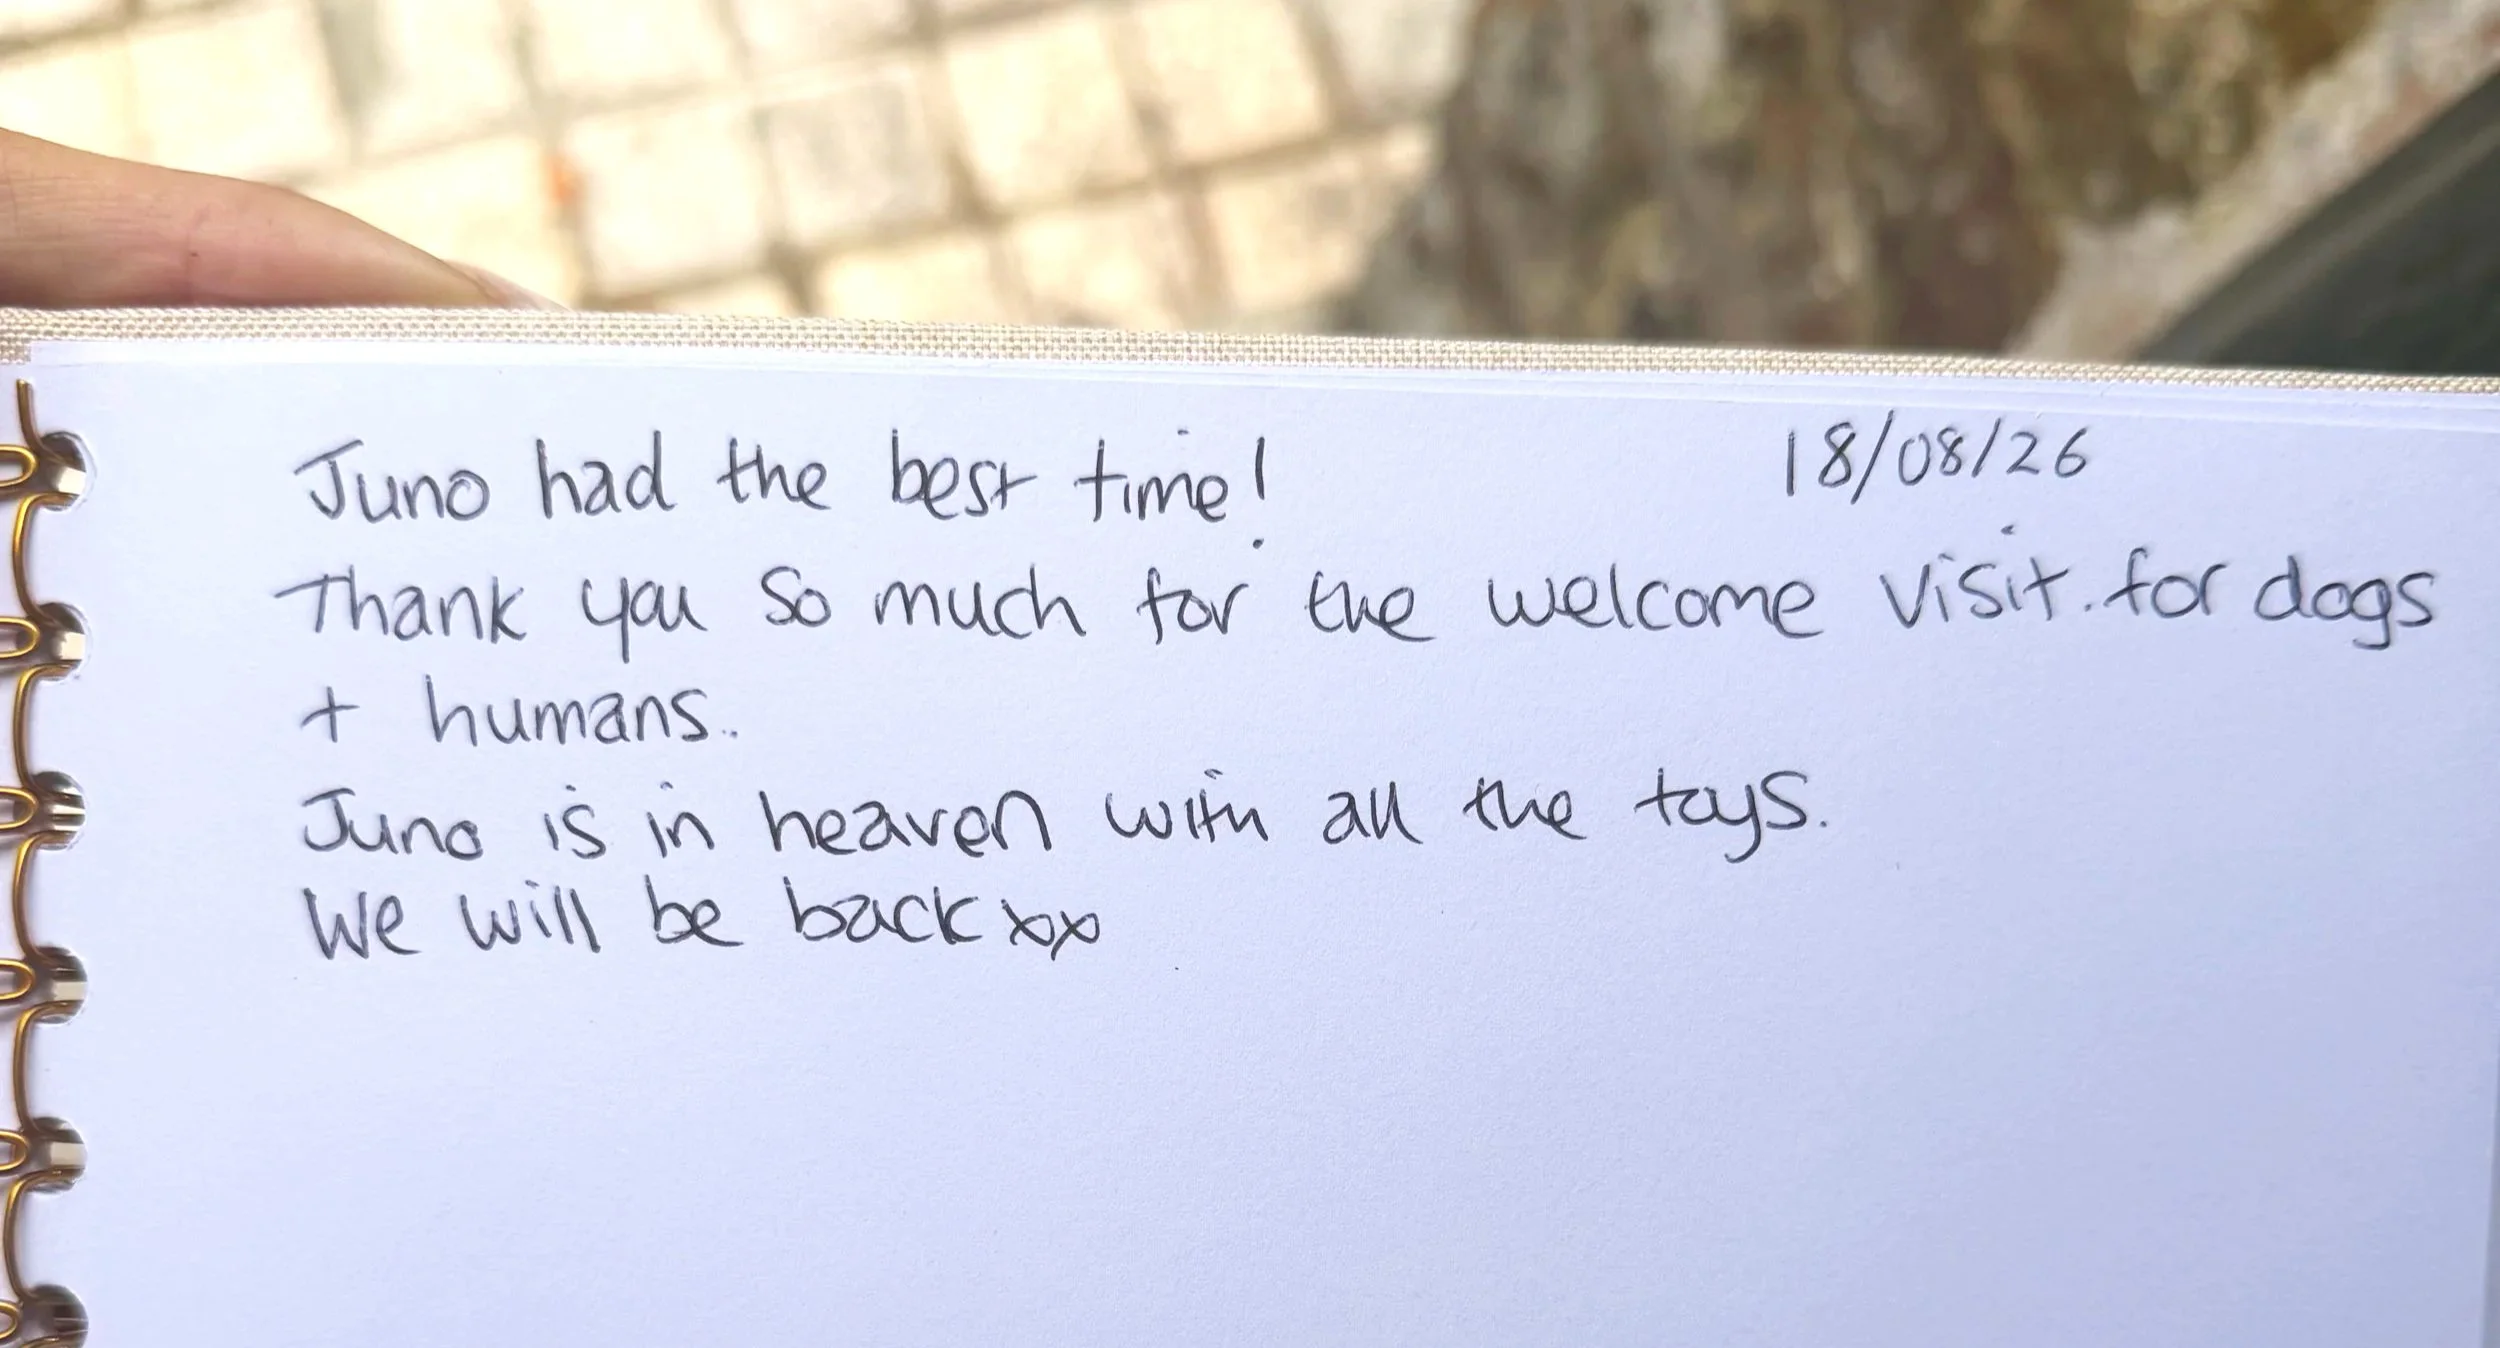 Juno had the best time! 18/08/26
Thank you so much for the welcome visit. for dogs
+ humans..
Juno is in heaven with all the toys.
We will be back xx